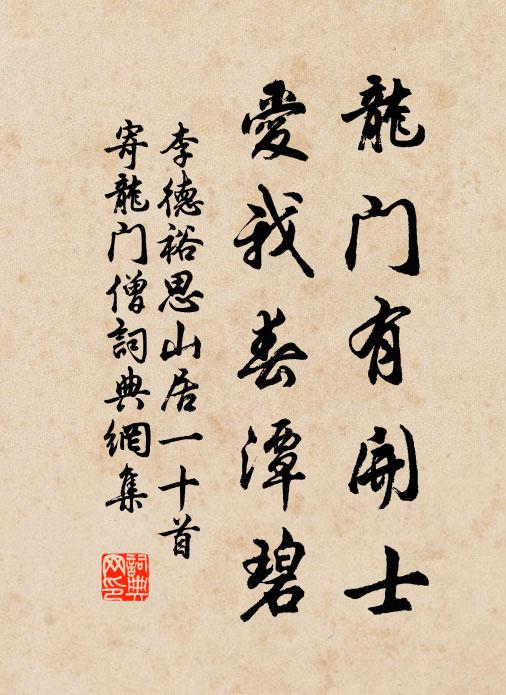 龍门有開士
愛我春潭碧
李德裕思山居一十首
寄龍门僧詞典網集
詞典网印